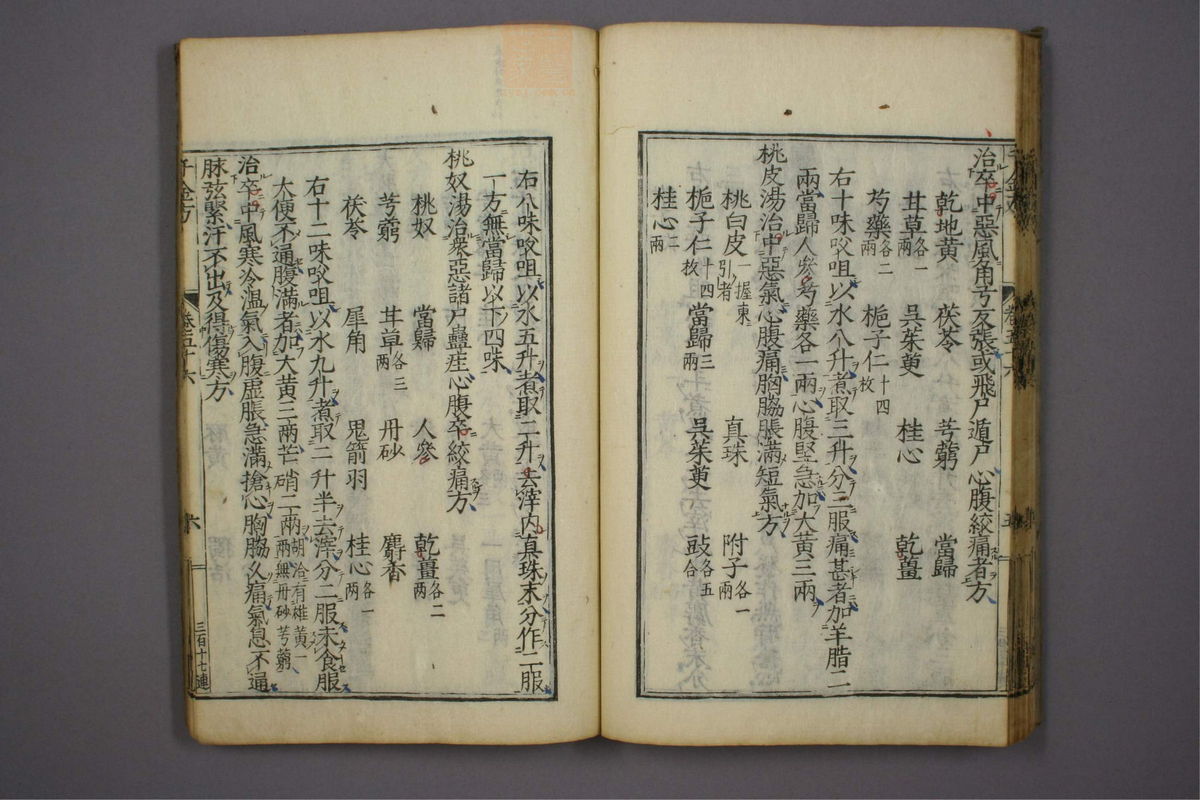 治卒中惡風角弓反張或飛尸遁尸心腹絞痛者方
乾地黃 茯苓 芎藭 當歸
甘草各一兩 吳茱萸 桂心 乾薑
芍藥各二兩 梔子仁十四枚
右十味㕮咀以水八升煮取三升分三服痛甚者加羊脂二
兩當歸人參芍藥各一兩心腹堅急加大黃三兩
桃皮湯治中惡氣心腹痛胸脇脹滿短氣方
桃白皮一握東引者 真珠 附子各一兩
梔子仁十四枚 當歸三兩 吳茱萸 豉各五合
桂心二兩
右八味㕮咀以水五升煮取二升去滓内真珠末分作二服
一方無當歸以下四味
桃奴湯治衆惡諸尸蠱疰心腹卒絞痛方
桃奴 當歸 人參 乾薑各二兩
芎藭 甘草各三兩 丹砂 麝香
茯苓 犀角 鬼箭羽 桂心各一兩
右十二味㕮咀以水九升煮取二升半去滓分二服未食服
大便不通腹滿者加大黃三兩芒硝二兩胡洽有雄黃一兩無丹砂芎藭
治卒中風寒冷溫氣入腹虛脹急滿搶心胸脇久痛氣息不通
脉弦緊汗不出及得傷寒方
千金方 卷五十六 六 三百十七連